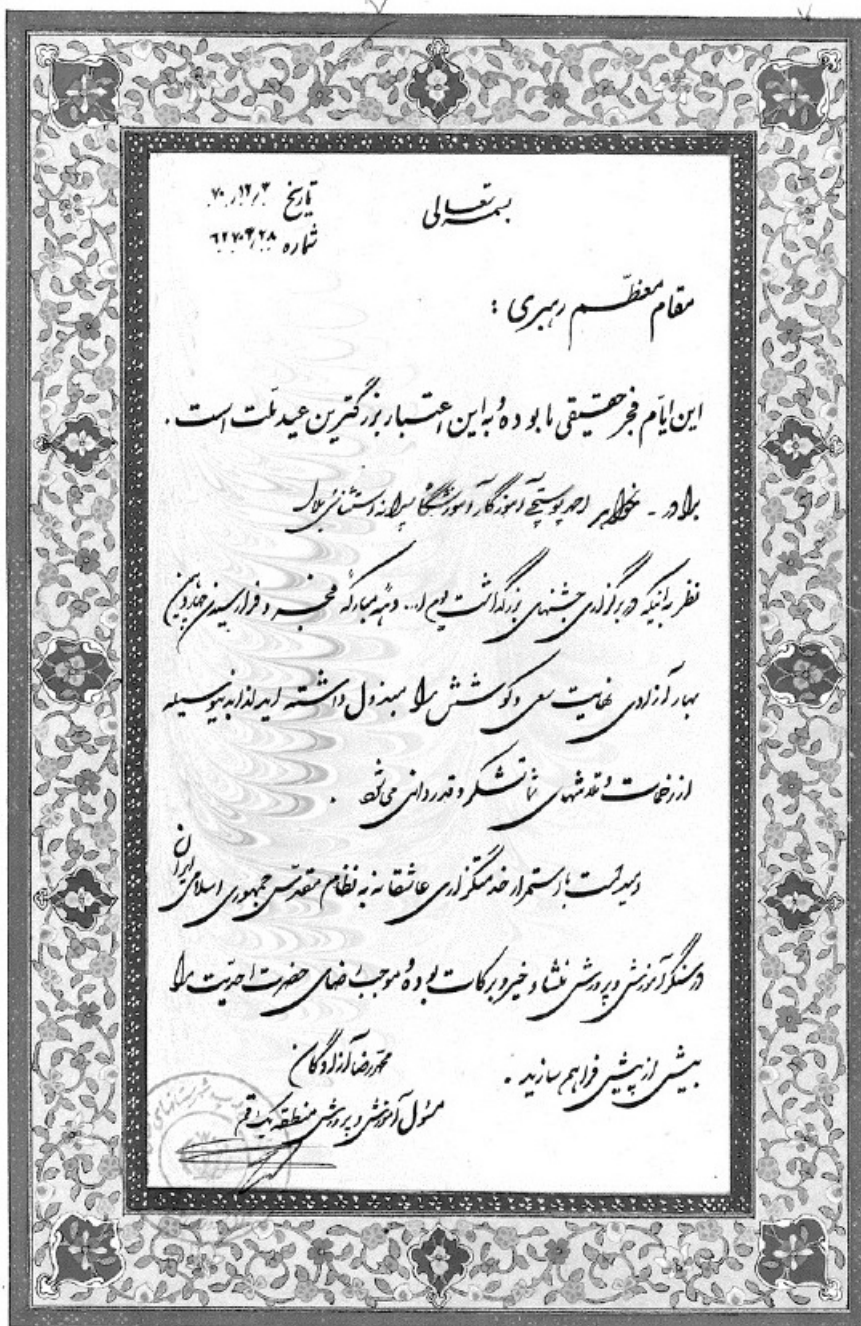 بسمه تعالی
تاریخ ۷۰/۱۲/۳
شماره ۶۲۷۰۳/۲۸
مقام معظم رهبری :
این ایام فجر حقیقی ما بوده و به این اعتبار بزرگترین عید ملت است .
برادر - خواهر احمد پوستچی آموزگار آموزشگاه پسرانه استثنائی بلال
نظر به اینکه در برگزاری جشنهای بزرگداشت یوم ا... دهه مبارکه فجر و فرارسیدن چهاردهمین
بهار آزادی نهایت سعی و کوشش را مبذول داشته اید لذا بدینوسیله
از زحمات و تلاشهای شما تشکر و قدردانی می شود .
امید است با استمرار خدمتگزاری عاشقانه به نظام مقدس جمهوری اسلامی ایران
در سنگر آموزش و پرورش منشاء خیر و برکات بوده و موجب رضای حضرت احدیت را
بیش از پیش فراهم سازید .
محمدرضا آزادگان
مسئول آموزش و پرورش منطقه یک قم